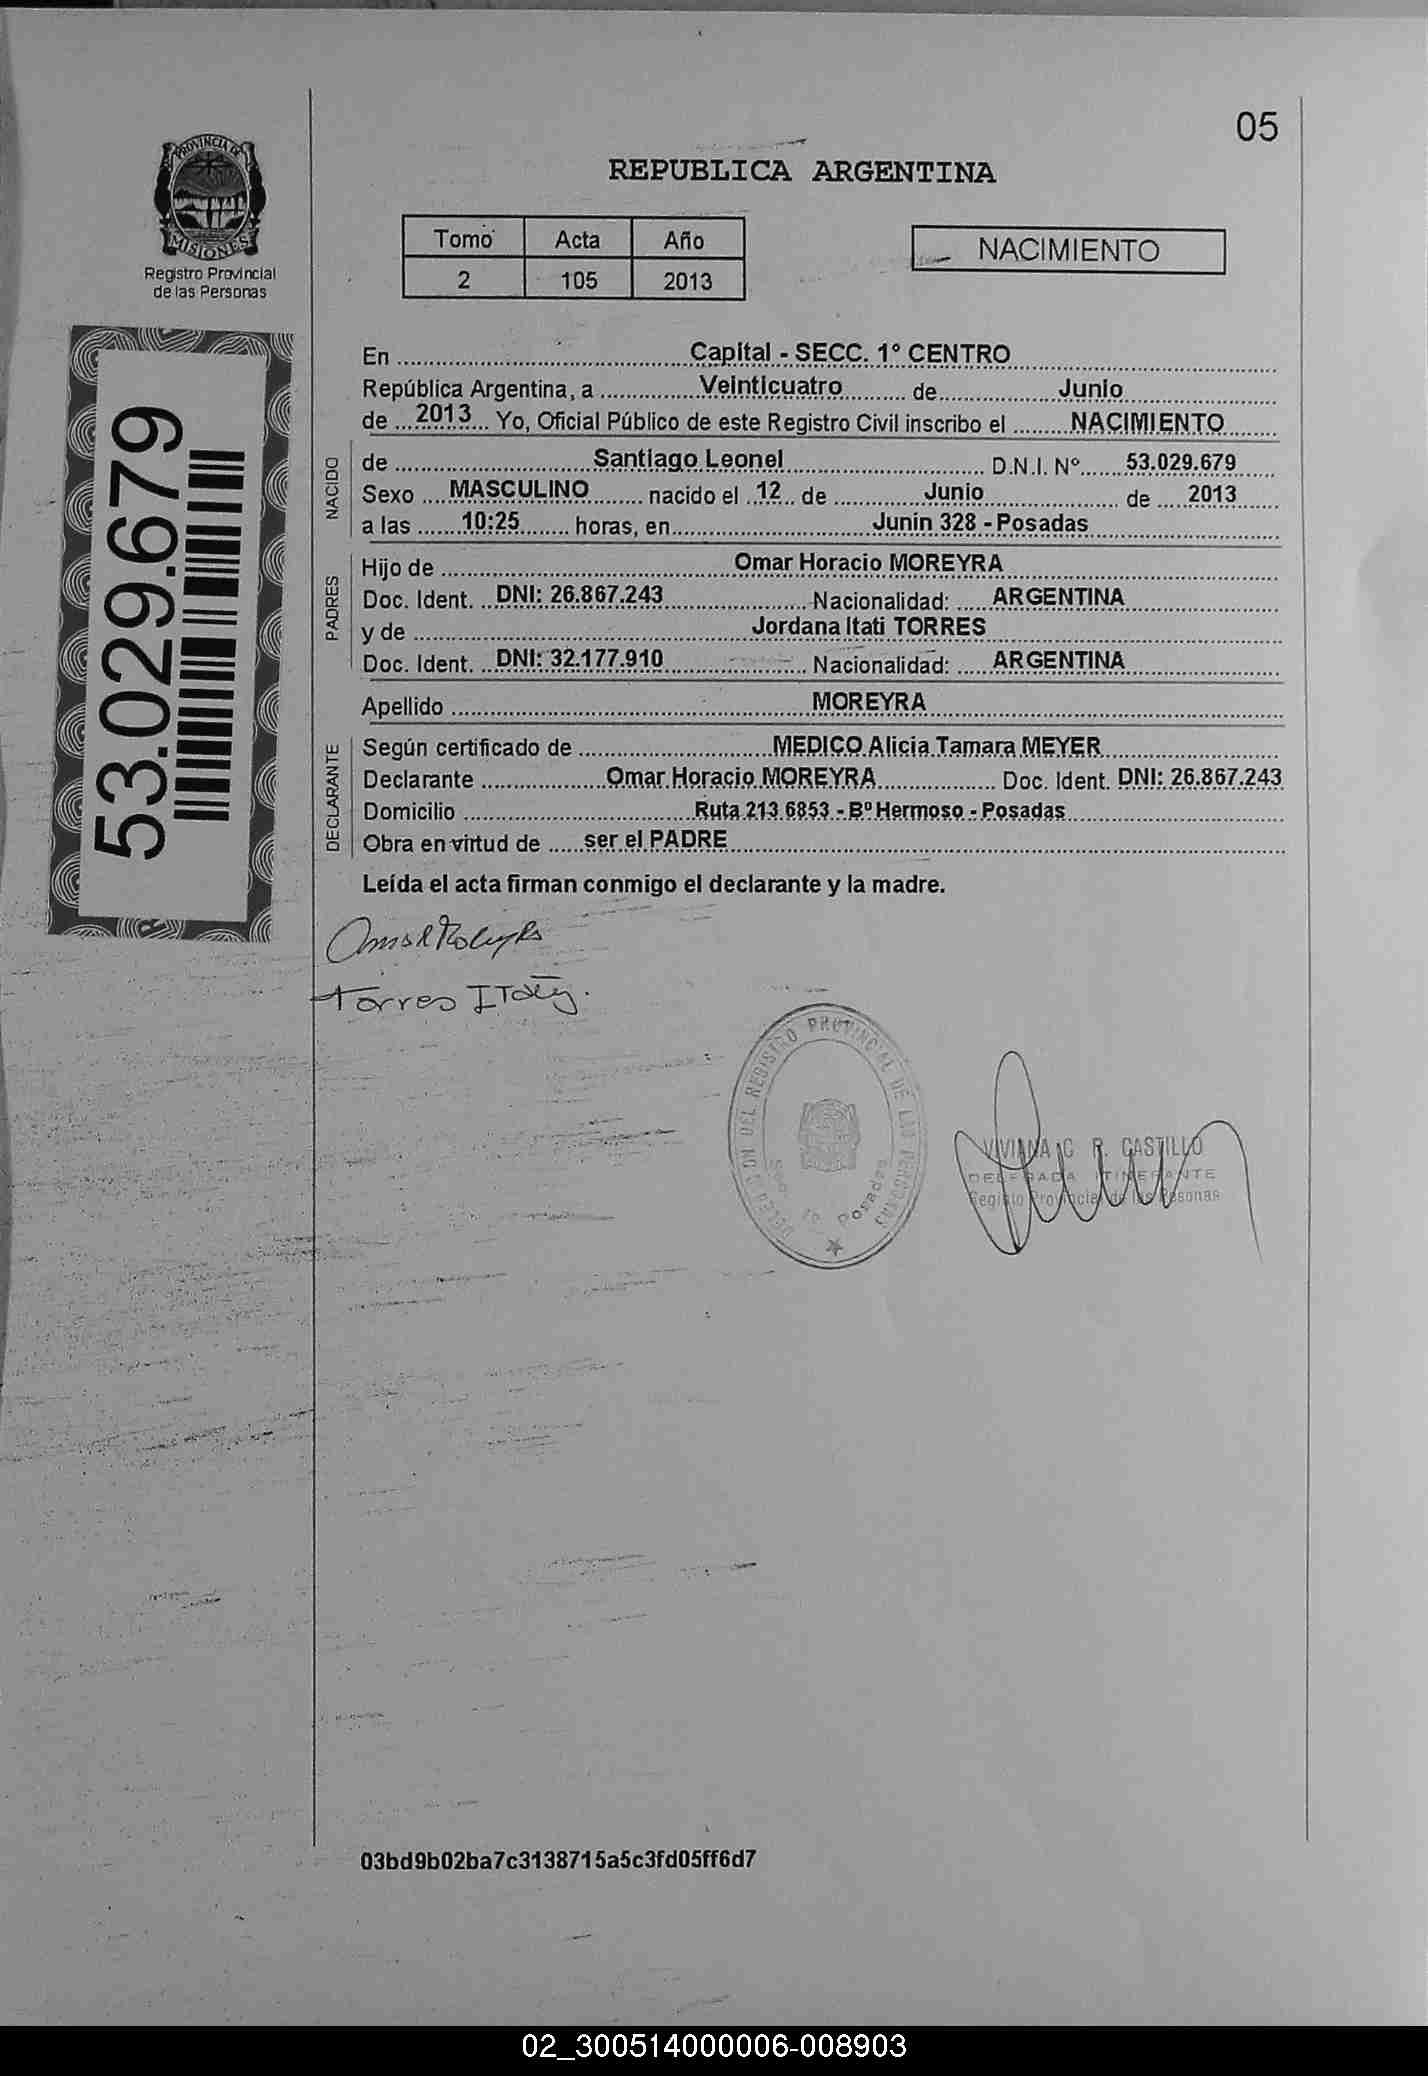 05
PROVINCIA DE
MISIONES
Registro Provincial
de las Personas
REPUBLICA ARGENTINA
Tomo Acta Año
2 105 2013
NACIMIENTO
53.029.679
En Capital - SECC. 1° CENTRO
República Argentina, a Veinticuatro de Junio
de 2013 Yo, Oficial Público de este Registro Civil inscribo el NACIMIENTO
NACIDO
de Santiago Leonel D.N.I. Nº 53.029.679
Sexo MASCULINO nacido el 12 de Junio de 2013
a las 10:25 horas, en Junin 328 - Posadas
PADRES
Hijo de Omar Horacio MOREYRA
Doc. Ident. DNI: 26.867.243 Nacionalidad: ARGENTINA
y de Jordana Itati TORRES
Doc. Ident. DNI: 32.177.910 Nacionalidad: ARGENTINA
Apellido MOREYRA
DECLARANTE
Según certificado de MEDICO Alicia Tamara MEYER
Declarante Omar Horacio MOREYRA Doc. Ident. DNI: 26.867.243
Domicilio Ruta 213 6853 - Bº Hermoso - Posadas
Obra en virtud de ser el PADRE
Leída el acta firman conmigo el declarante y la madre.
Torres
DELEGACION DEL REGISTRO PROVINCIAL DE LAS PERSONAS
Posadas
VIVIANA C. R. CASTILLO
DELEGADA ITINERANTE
Registo Provincial de las Pesonas
03bd9b02ba7c3138715a5c3fd05ff6d7
02_300514000006-008903